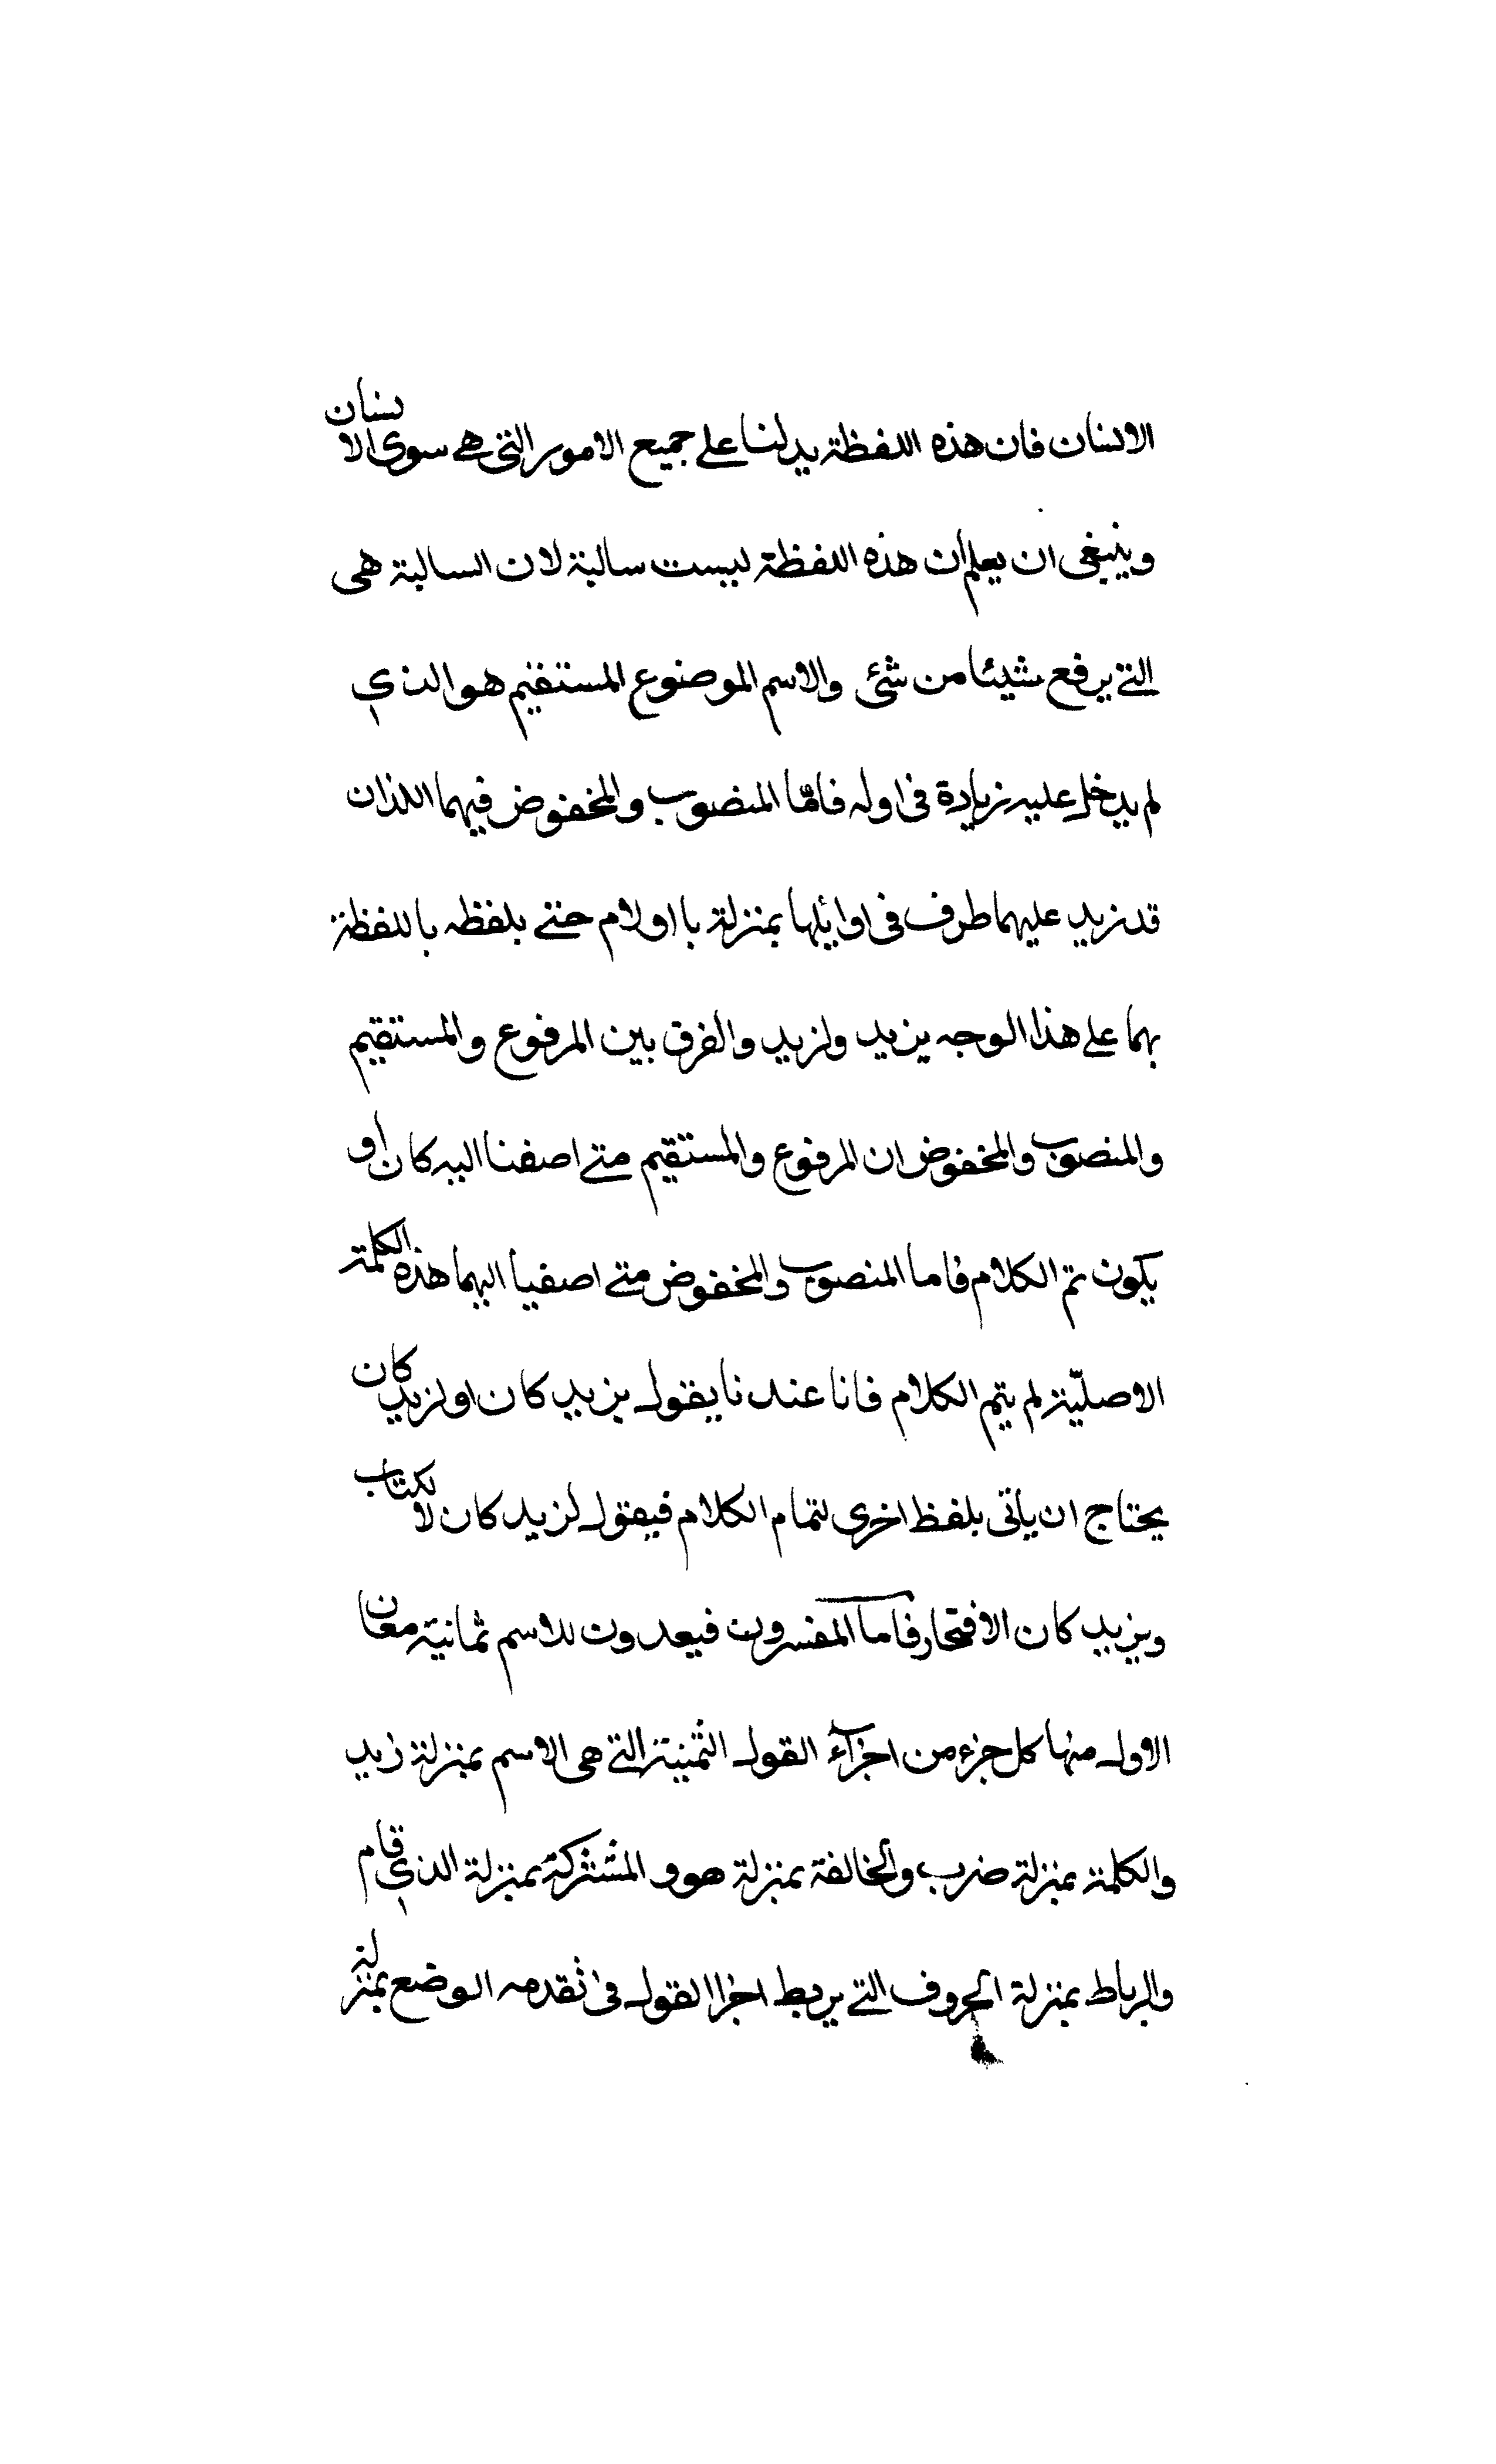 الانسان فان هذه اللفظة يدلنا على جميع الامور التى هى سوى الانسان
وينبغى ان يعلم ان هذه اللفظة ليست سالبة لان السالبة هى
التى يرفع شيئا من شئ والاسم الموضوع المستقيم هو الذي
لم يدخل عليه زيادة فى اوله فامّا المنصوب والمخفوض فيهما اللذان
قد زيد عليهما طرف فى اوائلها بمنزلة با او لام حتى بلفظه باللفظة
بهما على هذا الوجه بزيد ولزيد والفرق بين المرفوع والمستقيم
والمنصوب والمخفوض ان المرفوع والمستقيم متى اصفنا اليه كان او
يكون تم الكلام فاما المنصوب والمخفوض متى اصفيا اليهما هذه الكلمة
الاصليّة لم يتم الكلام فانا عندنا يقول بزيد كان او لزيد كان
يحتاج ان يأتى بلفظ اخرى لتمام الكلام فيقول لزيد كان لا لكتاب
وبزيد كان الافتخار فاما المفسرون فيعدون للاسم ثمانية معان
الاول منها كل جزء من اجزآء القول الثمنية التى هى الاسم بمنزلة زيد
والكلمة بمنزلة ضرب والخالفة بمنزلة هو و المشتركة بمنزلة الذي قام
والرباط بمنزلة الحروف التى يربط اجزا القول فى تقدمه الوضع بمنزلة